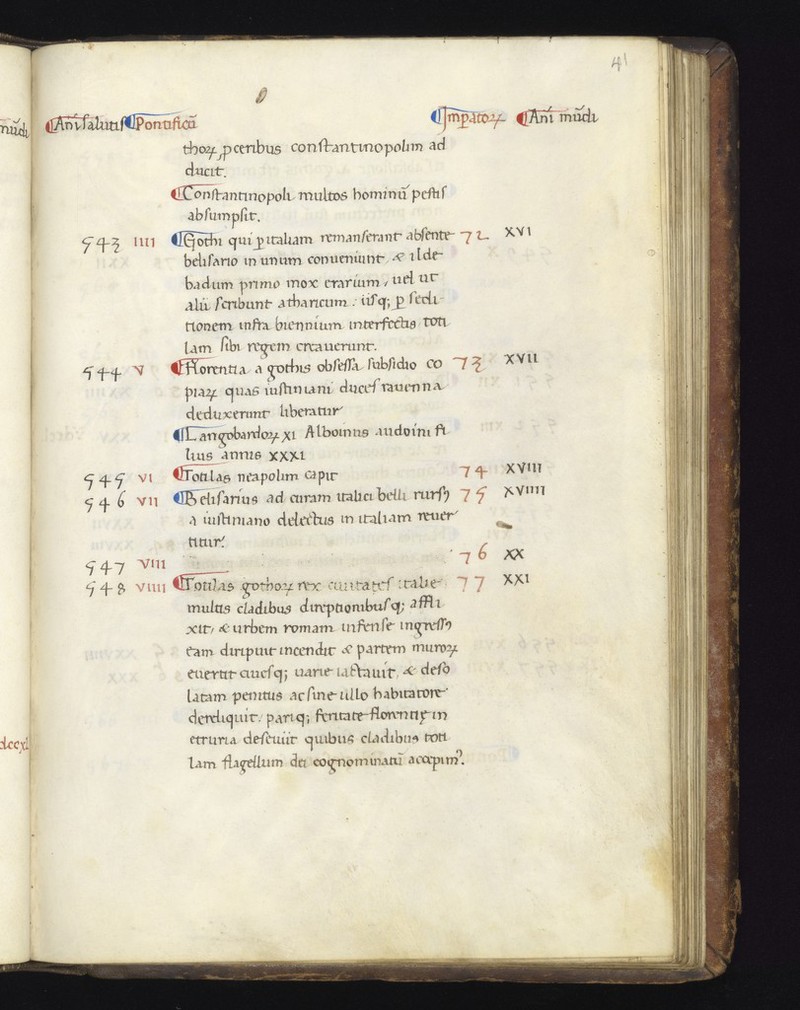 41
Añi salutis Pontificũ Imꝑatoꝝ Añi mũdi
thoꝝ ꝓceribus constantinopolim ad
ducit.
Constantinopoli multos hominũ pestis
absumpsit.
543 IIII Gothi qui ꝑ italiam remanserant absente 72 XVI
belisario in unum conueniunt & ilde
badum primo mox erarium, uel ut
alii scribunt atharicum: iisq; ꝑ sedi
tionem infra biennium interfectis toti
lam sibi regem creauerunt.
544 V Florentia a gothis obsessa subsidio co 73 XVII
piaꝝ quas iustiniani duces rauenna
deduxerunt liberatur
Langobardoꝝ XI Alboinus audoini fi
lius annis XXXI
545 VI Totilas neapolim capit 74 XVIII
546 VII Belisarius ad curam italici belli rursꝰ 75 XVIIII
a iustiniano delectus in italiam reuer
titur.
547 VIII 76 XX
548 VIIII Totilas gothoꝝ rex ciuitates italie 77 XXI
multis cladibus direptionibusq; affli
xit, & urbem romam infense ingressꝰ
eam diripuit incendit & partem muroꝝ
euertit ciuesq; uarie iactauit & deso
latam penitus ac sine ullo habitatore
dereliquit. pariq; feritate florentię in
etruria deseuiit quibus cladibus toti
lam flagellum dei cognominatũ accepimꝰ.